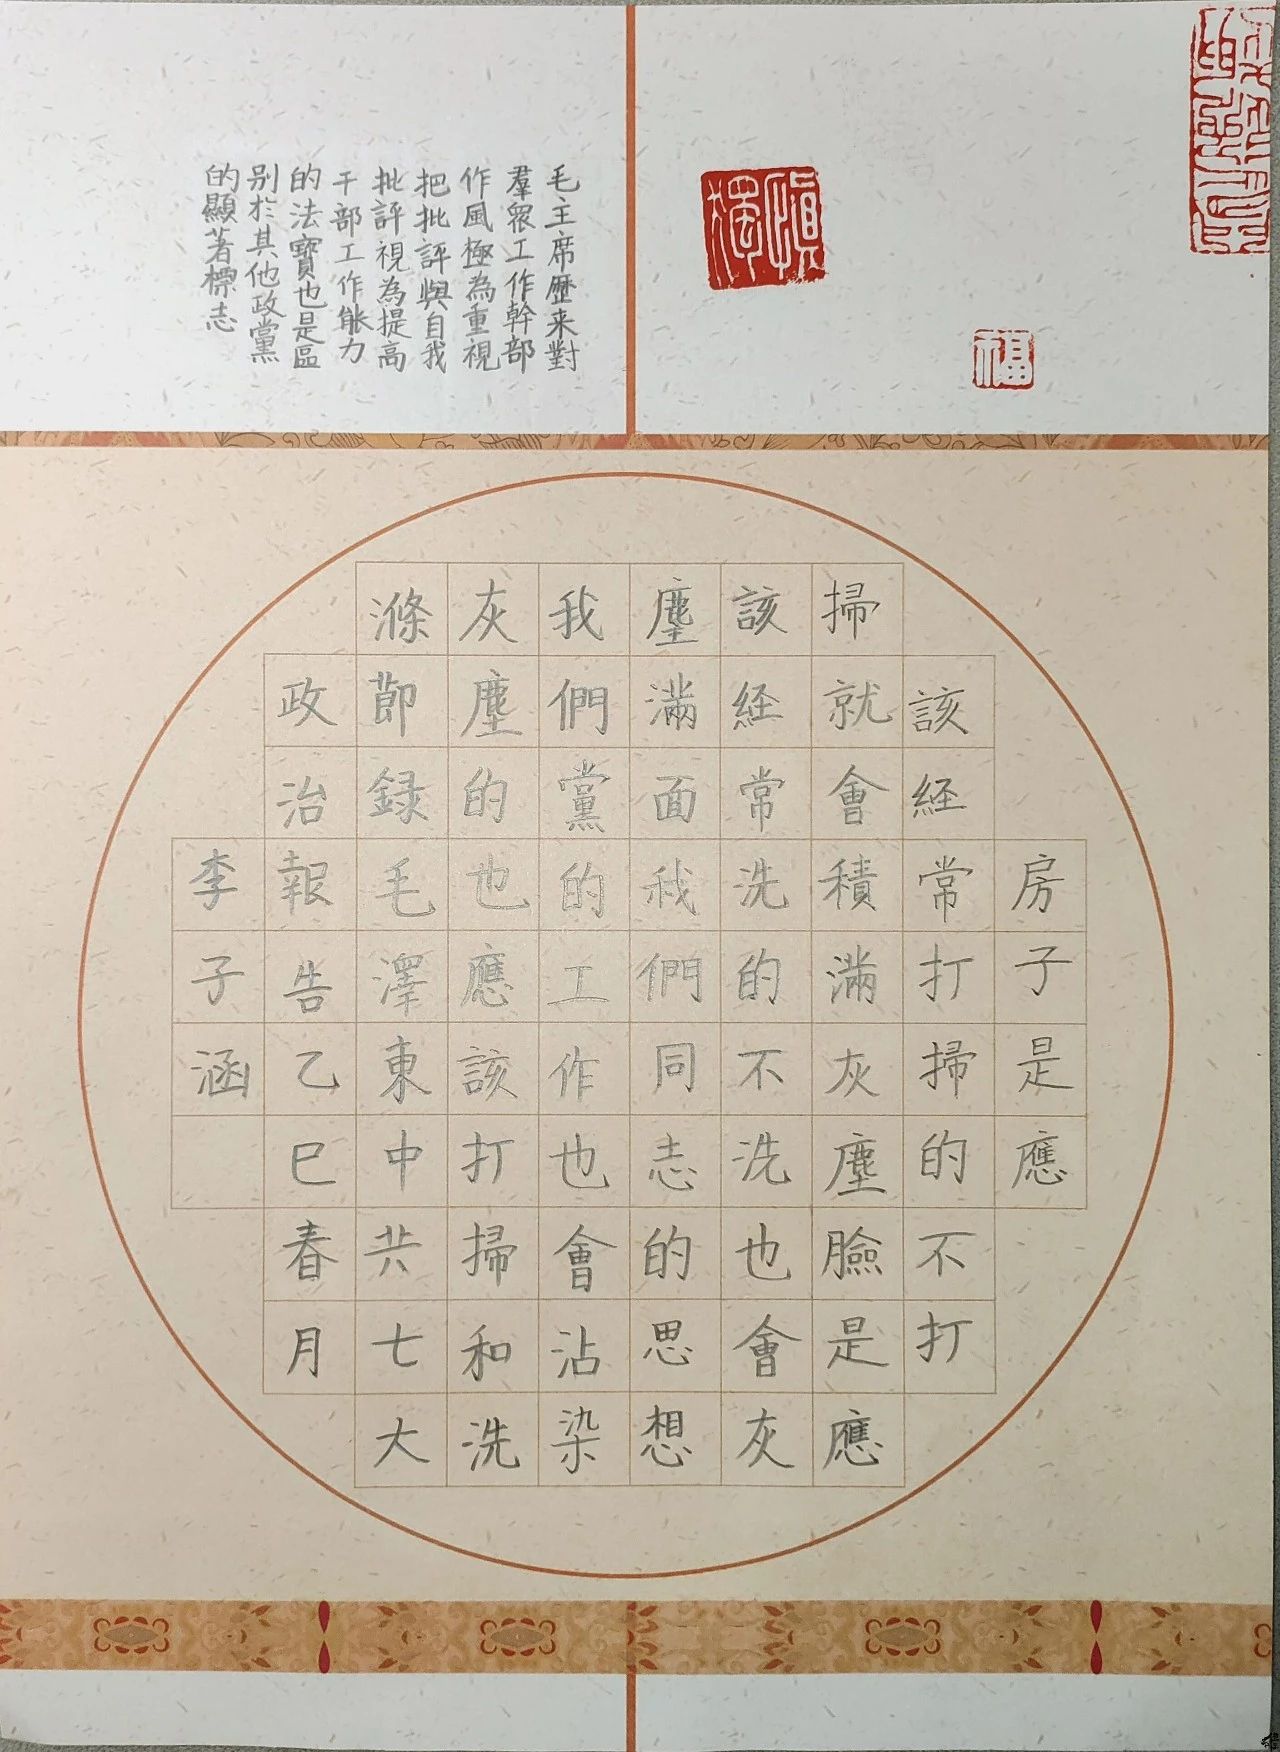 毛主席歷来對
羣眾工作幹部
作風極為重視
把批評與自我
批評視為提高
干部工作能力
的法寶也是區
别於其他政黨
的顯著標志
慎獨
福
房子是應
該経常打掃的不打
掃就會積滿灰塵臉是應
該経常洗的不洗也會灰
塵滿面我們同志的思想
我們黨的工作也會沾染
灰塵的也應該打掃和洗
滌節録毛澤東中共七大
政治報告乙巳春月
李子涵